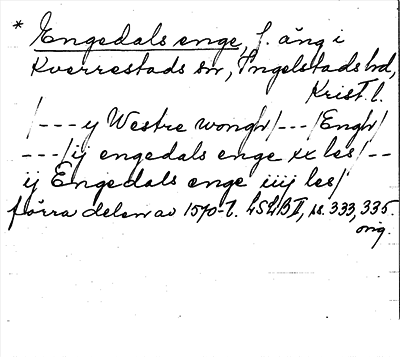 * Engedals enge, f. äng i
Kverrestads sn, Ingelstads hd,
Krist. l.
/--- ij Westre wongh/---/Engh/
---/ij engedals enge xx les/--
ij Engedals enge iiij les/
förra delen av 1570-t. LSLB II, ss. 333, 335.
orig.